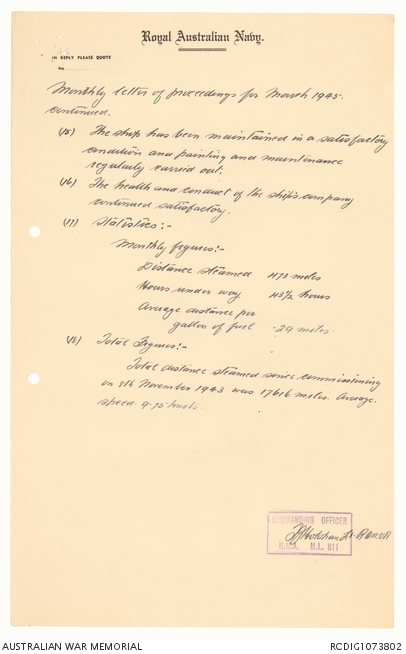 Royal Australian Navy.
IN REPLY PLEASE QUOTE
No
Monthly letter of proceedings for March 1945.
continued.
(15) The ship has been maintained in a satisfactory
condition and painting and maintenance
regularly carried out.
(16) The health and conduct of the ship's company
continued satisfactory.
(17) Statistics:-
Monthly figures:-
Distance steamed 473 miles
Hours under way 43½ hours
Average distance per
gallon of fuel .29 miles
(18) Total Figures:-
Total distance steamed since commissioning
on 9th November 1943 was 17616 miles. Average.
speed. 9.75 knots.
COMMANDING OFFICER
H.M.A. M.L. 811